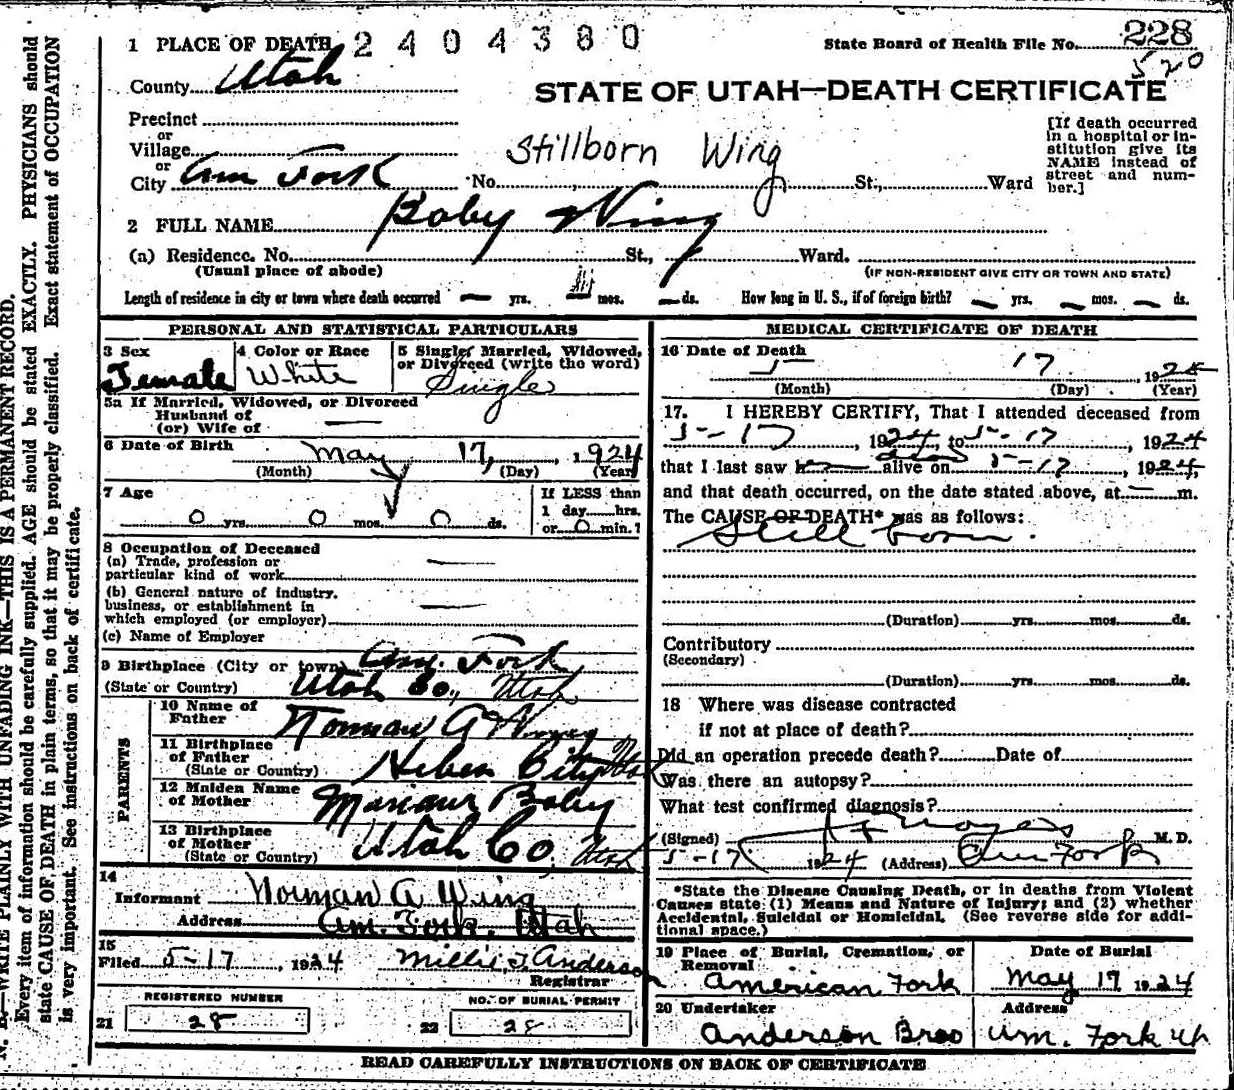 1 PLACE OF DEATH 2404380
State Board of Health File No. 228
520
County Utah
STATE OF UTAH—DEATH CERTIFICATE
Precinct
or
Village
or
City Am Fork No. St., Ward
Stillborn Wing
[If death occurred
in a hospital or in-
stitution give its
NAME instead of
street and num-
ber.]
2 FULL NAME Baby Wing
(a) Residence. No. St., Ward.
(Usual place of abode) (IF NON-RESIDENT GIVE CITY OR TOWN AND STATE)
Length of residence in city or town where death occurred — yrs. mos. — ds. How long in U. S., if of foreign birth? — yrs. — mos. — ds.
PERSONAL AND STATISTICAL PARTICULARS
3 Sex Female
4 Color or Race White
5 Single, Married, Widowed,
or Divorced (write the word)
Single
5a If Married, Widowed, or Divorced
Husband of
(or) Wife of —
6 Date of Birth May 17, 1924
(Month) (Day) (Year)
7 Age
0 yrs. 0 mos. 0 ds.
If LESS than
1 day hrs.
or 0 min.?
8 Occupation of Deceased
(a) Trade, profession or
particular kind of work —
(b) General nature of industry,
business, or establishment in
which employed (or employer) —
(c) Name of Employer
9 Birthplace (City or town) Am. Fork
(State or Country) Utah Co., Utah
PARENTS
10 Name of
Father Norman A Wing
11 Birthplace
of Father
(State or Country) Heber City Utah
12 Maiden Name
of Mother
13 Birthplace
of Mother
(State or Country) Utah Co, Utah
14
Informant Norman A Wing
Address Am. Fork, Utah
15
Filed 5-17, 1924 Millie J. Anderson
Registrar
REGISTERED NUMBER
21 28
NO. OF BURIAL PERMIT
22 28
MEDICAL CERTIFICATE OF DEATH
16 Date of Death
5 17, 1924
(Month) (Day) (Year)
17. I HEREBY CERTIFY, That I attended deceased from
5-17, 1924, to 5-17, 1924
that I last saw h alive on 5-17, 1924,
and that death occurred, on the date stated above, at — m.
The CAUSE OF DEATH* was as follows:
Still born.
(Duration) yrs. mos. ds.
Contributory
(Secondary)
(Duration) yrs. mos. ds.
18 Where was disease contracted
if not at place of death?
Did an operation precede death? Date of
Was there an autopsy?
What test confirmed diagnosis?
(Signed) Noyes M. D.
5-17 1924 (Address) Am Fork
*State the Disease Causing Death, or in deaths from Violent
Causes state (1) Means and Nature of Injury; and (2) whether
Accidental, Suicidal or Homicidal. (See reverse side for addi-
tional space.)
19 Place of Burial, Cremation, or
Removal
American Fork
Date of Burial
May 17 1924
20 Undertaker
Anderson Bros
Address
Am. Fork Ut
READ CAREFULLY INSTRUCTIONS ON BACK OF CERTIFICATE
N. B.—WRITE PLAINLY WITH UNFADING INK—THIS IS A PERMANENT RECORD.
Every item of information should be carefully supplied. AGE should be stated EXACTLY. PHYSICIANS should
state CAUSE OF DEATH in plain terms, so that it may be properly classified. Exact statement of OCCUPATION
is very important. See instructions on back of certificate.